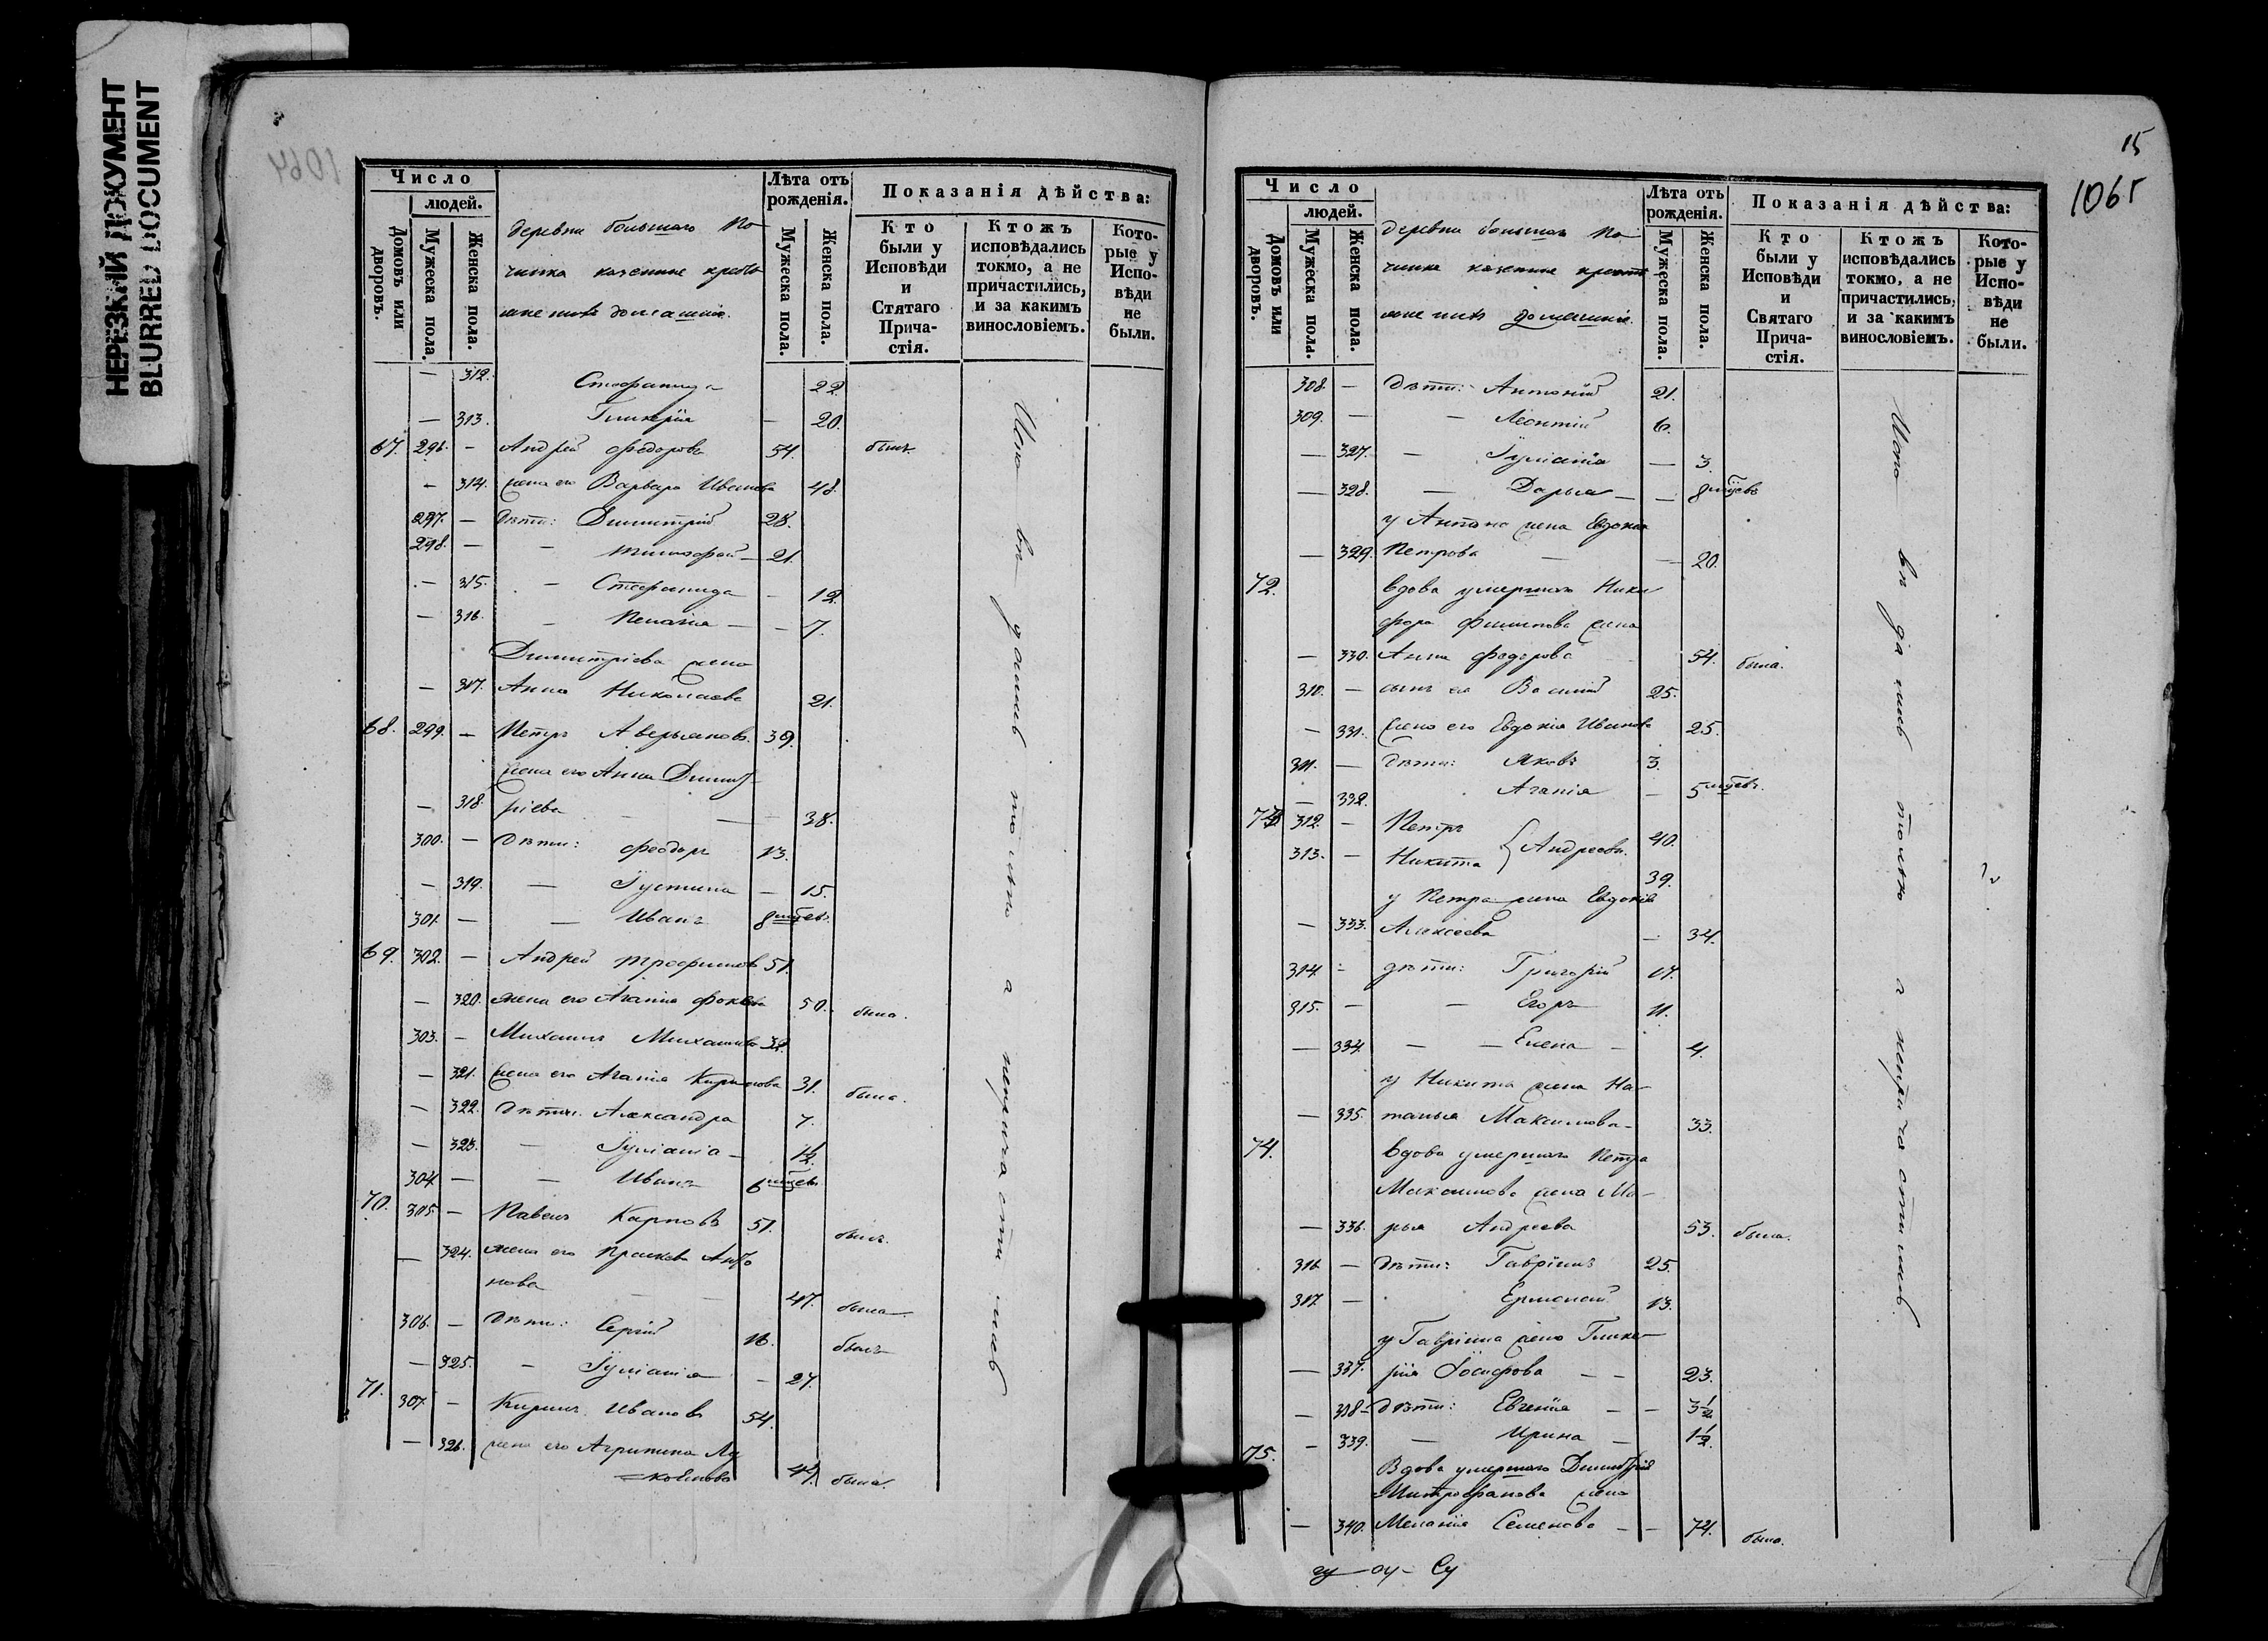 НЕРЕЗКИЙ ДОКУМЕНТ
BLURRED DOCUMENT
1064
Число
людей.
Домовъ или дворовъ.
Мужеска пола.
Женска пола.
деревни большаго По
чинка казенные кресть
яне и ихъ домашнія.
Лѣта отъ рожденія.
Мужеска пола.
Женска пола.
Показанія дѣйства:
Кто были у Исповѣди и Стятаго Прича-стія.
Ктожъ исповѣдались токмо, а не причастились, и за какимъ винословіемъ.
Кото-рые у Испо-вѣди не были.
— 312. Стефанида 22.
— 313. Гликерія — 20.
67. 296. — Андрей Федоровъ 54. былъ
— 314. жена его Варвара Иванова 48.
297. — Дѣти: Димитрій 28.
298. — — Тимофей — 21.
— 315. — Стефанида — 12.
— 316. — Пелагія — — 7.
Димитріева жена
— 317. Анна Николаева 21.
68. 299. — Петръ Аверьяновъ 39.
жена его Анна Димит
— 318. ріева — — 38.
300. — Дѣти: Феодоръ 13.
— 319. — Іустина — 15.
301. — — Иванъ 8 мѣсев.
69. 302. — Андрей Трофимовъ 51.
— 320. жена его Агапія Фокеева 50. была.
303. — Михаилъ Михаиловъ 32.
— 321. жена его Агапія Кирилова 31. была.
— 322. Дѣти: Александра 7.
— 323. — Іуліанія — 1½
304 — — Иванъ 6 мѣсев.
70. 305. — Павелъ Карповъ 51. былъ.
— 324. жена его Праскева Анто
нова — — 47. была
306. — Дѣти: Сергій 16. былъ
— 325. — Іуліанія — 27.
71. 307 — Кирилъ Ивановъ 54.
— 326. жена его Агрипина Лу
=ковлева 47. была.
только а непричастилсь
15
1065
Число
людей.
Домовъ или дворовъ.
Мужеска пола.
Женска пола.
деревни большаго По
чинка казенные кресть
яне и ихъ домашніе.
Лѣта отъ рожденія.
Мужеска пола.
Женска пола.
Показанія дѣйства:
Кто были у Исповѣди и Святаго Прича-стія.
Ктожъ исповѣдались токмо, а не причастились, и за какимъ винословіемъ.
Кото-рые у Испо-вѣди не были.
308. — Дѣти: Антоній 21.
309. — — Леонтій 6.
— 327. — Іуліанія — 3.
— 328. — Дарья — — 8 мѣсев
у Антона жена Евдокія
— 329. Петрова — — 20.
72. вдова умершаго Ники
фора Филипова жена
— 330. Анна Федорова 54. была.
310. — сынъ ея Василій 25.
— 331. жена его Евдокія Иванова 25.
311. — Дѣти: Яковъ 3.
— 332. Агапія — 5 мѣсев.
73 312. — Петръ } Андреевы. 40.
313. — Никита 39.
у Петра жена Евдокія
— 333. Алексеева — 34.
314. — дѣти: Григорій 17.
315. — — Егоръ 11.
— 334. — — Елена — 4.
у Никиты жена На-
— 335. талья Максимова — 33.
74. вдова умершаго Петра
Максимова жена Ма-
— 336. рья Андреева 53. была.
316. — Дѣти: Гавріилъ 25.
317. — Ермолай 13.
у Гавріила жена Глике-
— 337. рія Іосифова — — 23.
— 338 — дѣти: Евгенія — — 3½
— 339. — Ирина — 1½.
75. Вдова умершаго Димитрія
Митрофанова жена
— 340. Меланія Семенова — — 74. была.
только а непричастилсь